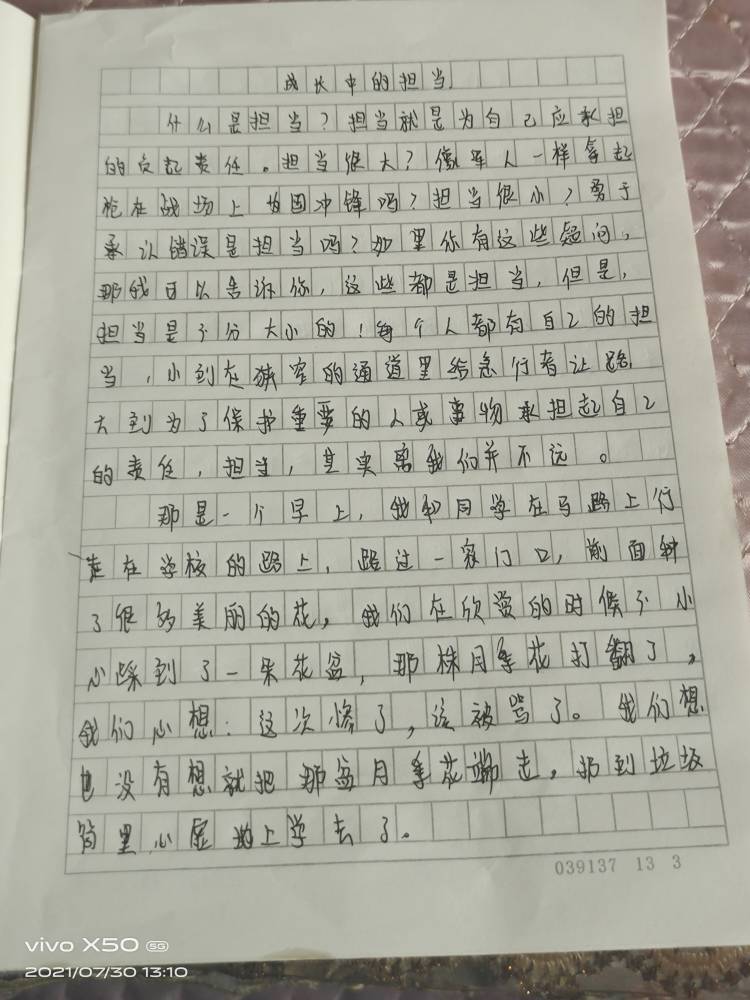 成长中的担当
什么是担当？担当就是为自己应承担
的负起责任。担当很大？像军人一样拿起
枪在战场上为国冲锋吗？担当很小？勇于
承认错误是担当吗？如果你有这些疑问，
那我可以告诉你，这些都是担当，但是，
担当是不分大小的！每个人都有自己的担
当，小到在狭窄的通道里给急行者让路，
大到为了保护重要的人或事物承担起自己
的责任，担当，其实离我们并不远。
那是一个早上，我和同学在马路上行
走在学校的路上，路过一家门口，前面种
了很多美丽的花，我们在欣赏的时候不小
心踩到了一朵花盆，那株月季花打翻了，
我们心想：这次惨了，该被骂了。我们想
也没有想就把那盆月季花端走，扔到垃圾
筒里心虚地上学去了。
039137 13 3
vivo X50 5G
2021/07/30 13:10